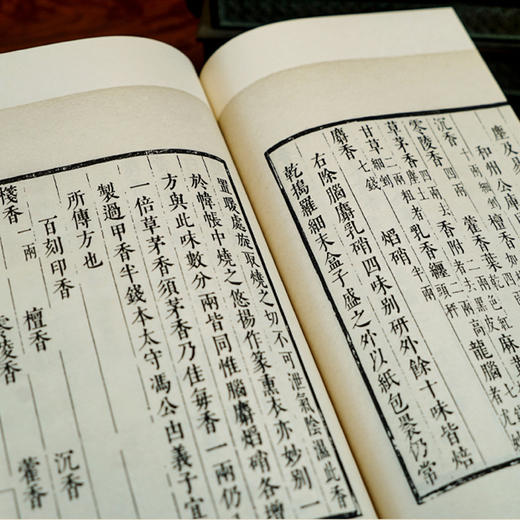 塵及
和州公庫
沉香 藿香葉 麻
零陵香四兩 去 香附者二兩 龍腦者尤
草茅香 乳香纏頭
甘草細剉七錢 焰硝半兩
麝香
右除腦麝乳硝四味別研外餘十味皆焙
乾搗羅細末盒子盛之外以紙包裹仍常
置暖處旋取燒之切不可泄氣陰濕此香
於幃帳中燒之悠揚作篆熏衣亦妙別一
方與此味數分兩皆同惟腦麝焰硝各增
一倍草茅香須茅香乃佳每香一兩仍
製過甲香半錢本太守馮公由義子宜
所傳方也
百刻印香
棧香一兩 檀香 沉香
零陵香 藿香